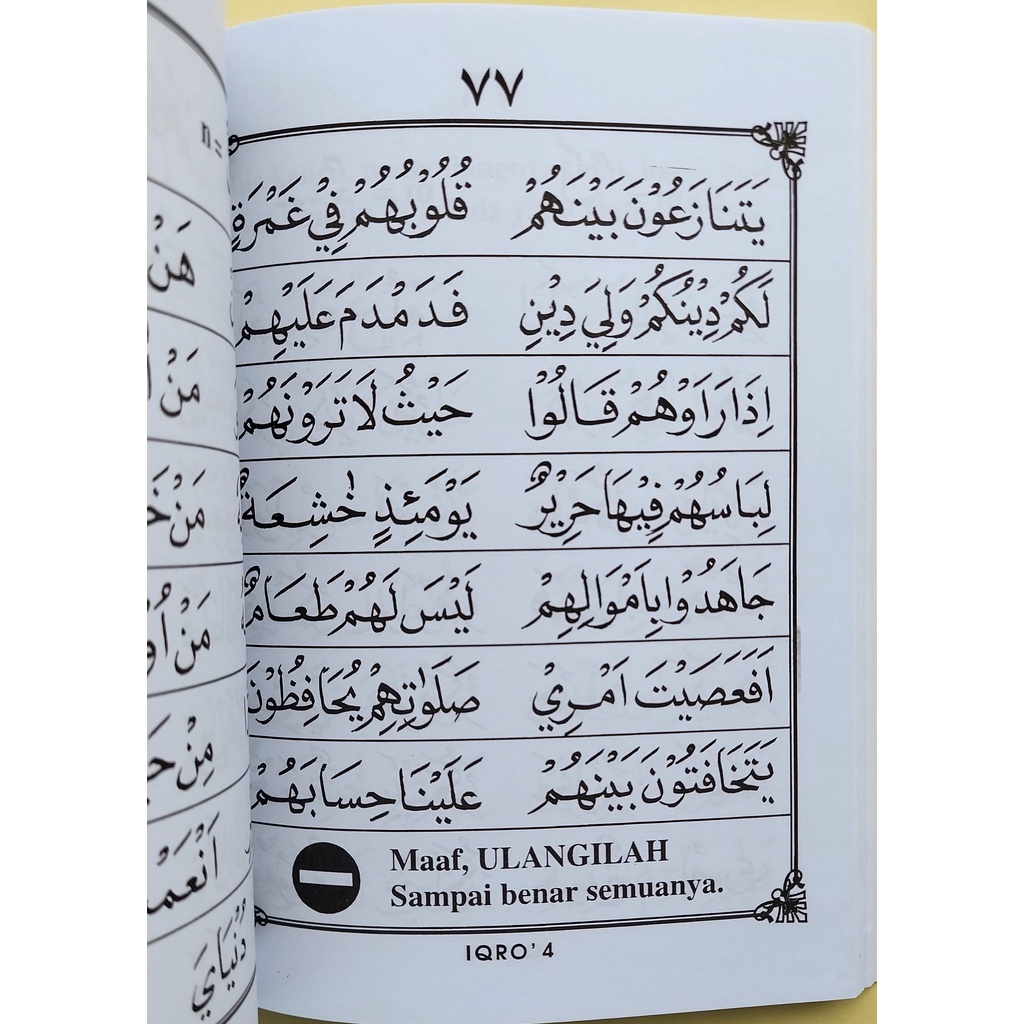 ٧٧
يَتَنَازَعُوْنَ بَيْنَهُمْ قُلُوْبُهُمْ فِيْ غَمْرَةٍ
لَكُمْ دِيْنُكُمْ وَلِيَ دِيْنِ فَدَمْدَمَ عَلَيْهِمْ
اِذَا رَاَوْهُمْ قَالُوْا حَيْثُ لَا تَرَوْنَهُمْ
لِبَاسُهُمْ فِيْهَا حَرِيْرٌ يَوْمَئِذٍ خٰشِعَةٌ
جَاهَدُوْا بِاَمْوَالِهِمْ لَيْسَ لَهُمْ طَعَامٌ
اَفَعَصَيْتَ اَمْرِيْ صَلَوٰتِهِمْ يُحَافِظُوْنَ
يَتَخَافَتُوْنَ بَيْنَهُمْ عَلَيْنَا حِسَابَهُمْ
Maaf, ULANGILAH
Sampai benar semuanya.
IQRO' 4
n =
مَنْ
مَنْ
مَنْ
مِنْ
دُنْيَايَ